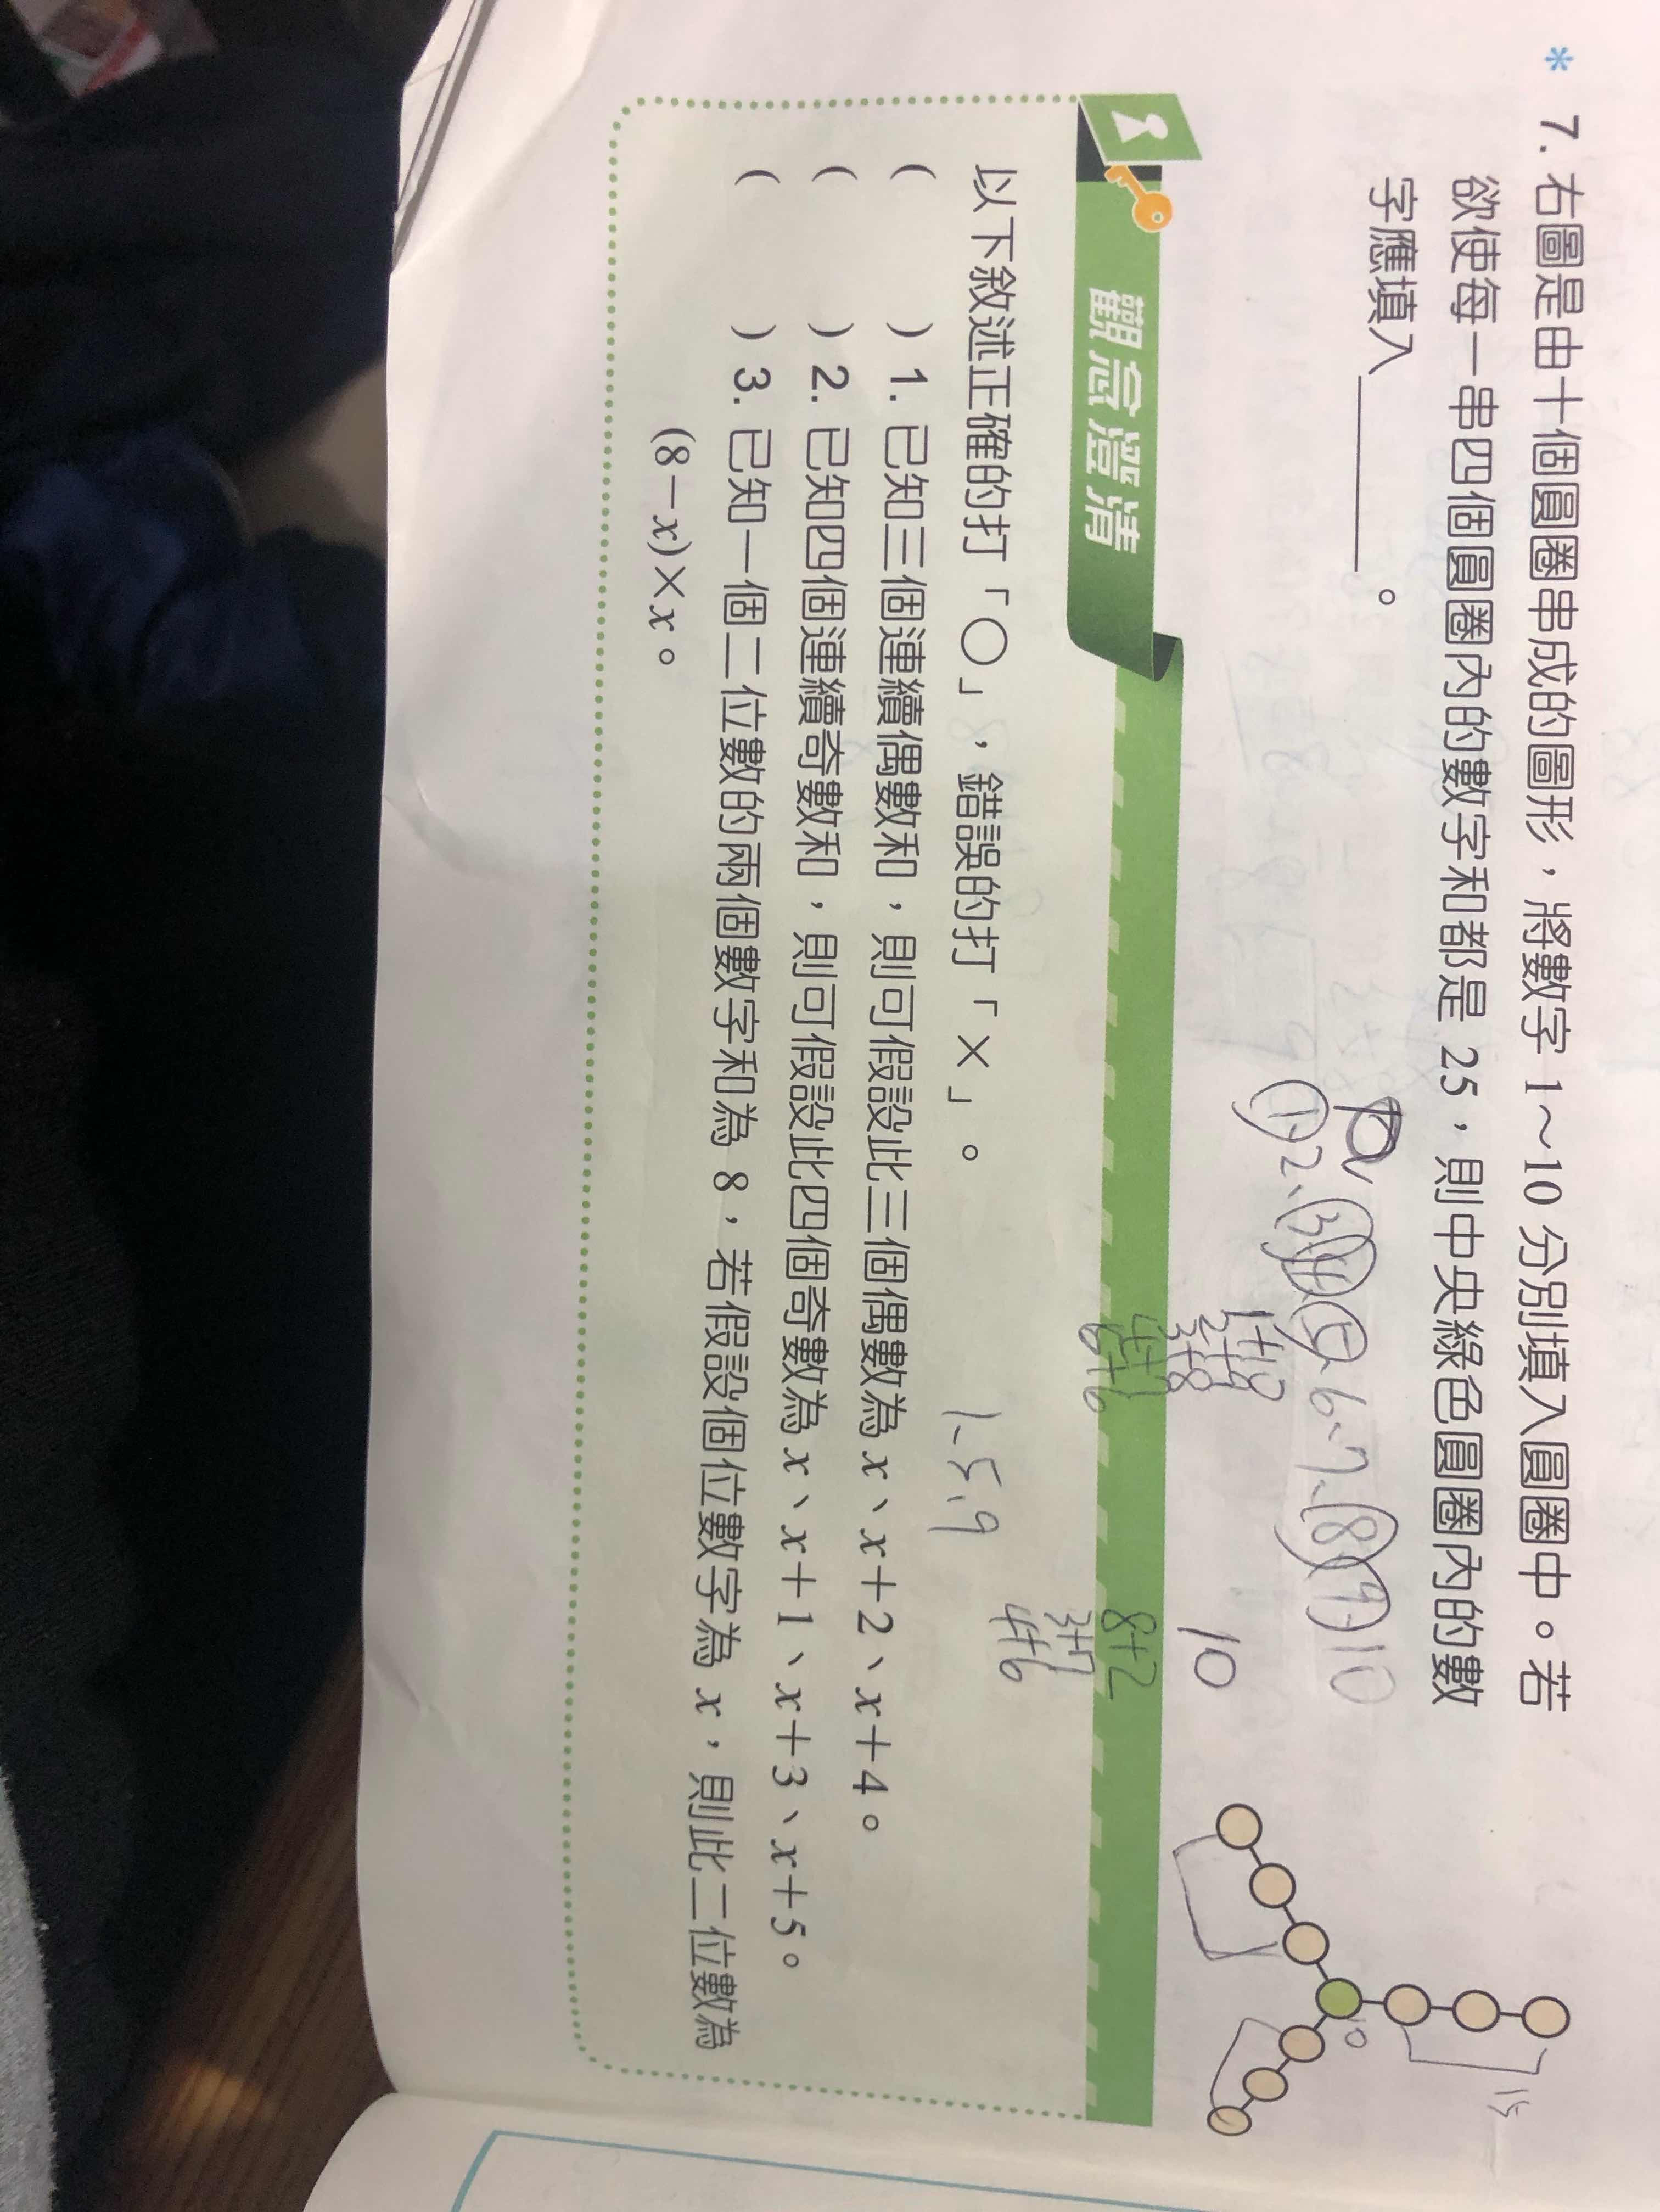 * 7. 右圖是由十個圓圈串成的圖形，將數字 1～10 分別填入圓圈中。若
欲使每一串四個圓圈內的數字和都是 25，則中央綠色圓圈內的數
字應填入＿＿＿＿。
1 2、3 4 5、6、7、8 9 10
10
15
10
1+10
2+9
3+8
4+7
6+6
8+2
3+7
4+6
1、5、9
觀念澄清
以下敘述正確的打「○」，錯誤的打「×」。
(　　) 1. 已知三個連續偶數和，則可假設此三個偶數為 x、x＋2、x＋4。
(　　) 2. 已知四個連續奇數和，則可假設此四個奇數為 x、x＋1、x＋3、x＋5。
(　　) 3. 已知一個二位數的兩個數字和為 8，若假設個位數字為 x，則此二位數為
(8－x)×x。